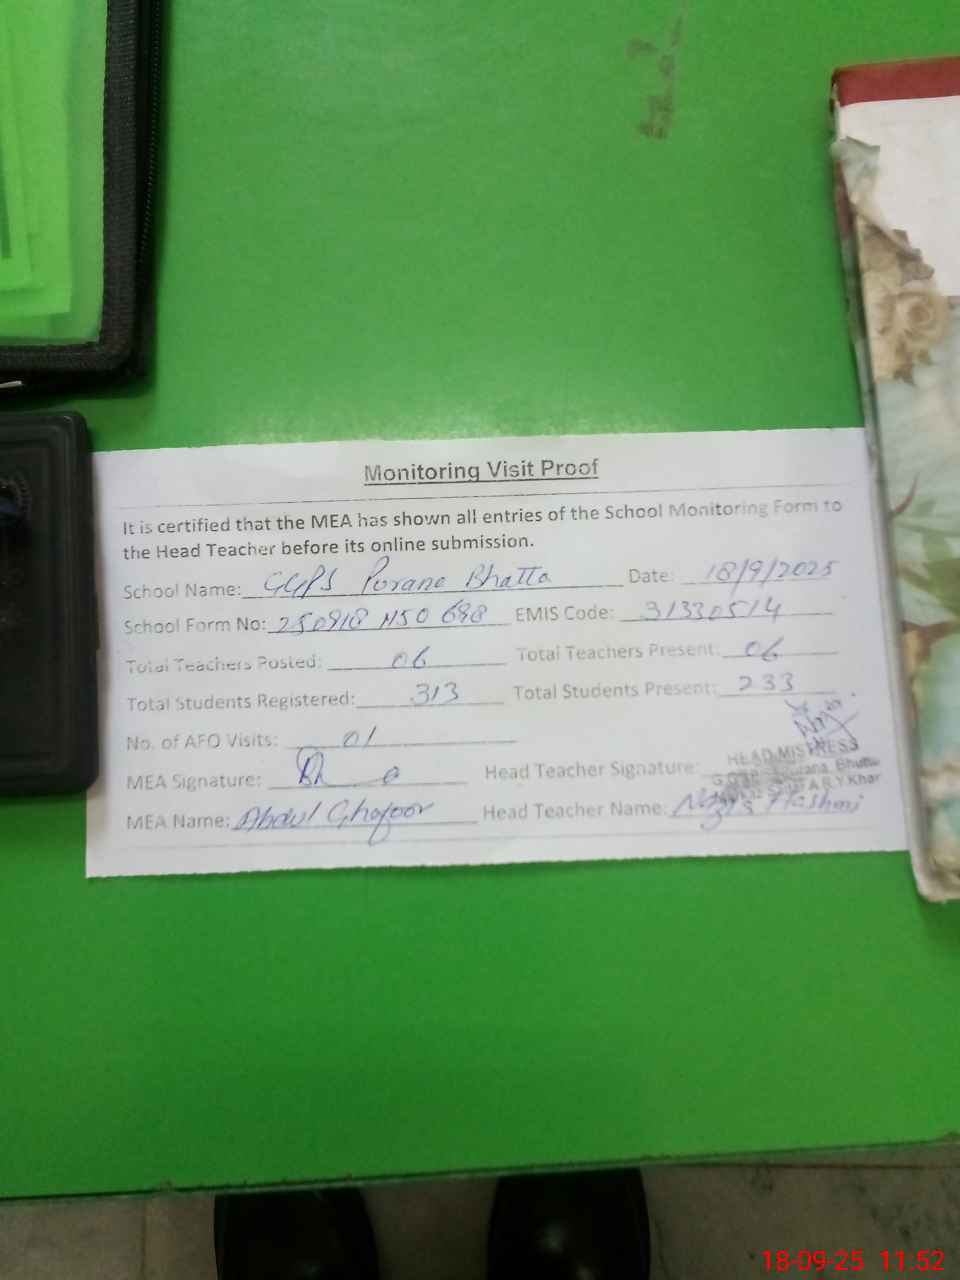 Monitoring Visit Proof
It is certified that the MEA has shown all entries of the School Monitoring Form to
the Head Teacher before its online submission.
School Name: GGPS Purana Bhatta Date: 18/9/2025
School Form No: 250918 1150 698 EMIS Code: 31330514
Total Teachers Posted: 06 Total Teachers Present: 06
Total Students Registered: 313 Total Students Present: 233
No. of AFO Visits: 01
HEAD MISTRESS
MEA Signature: Head Teacher Signature:
Purana Bhutta
R.Y.Khan
MEA Name: Abdul Ghafoor Head Teacher Name: Hashmi
18-09-25 11:52